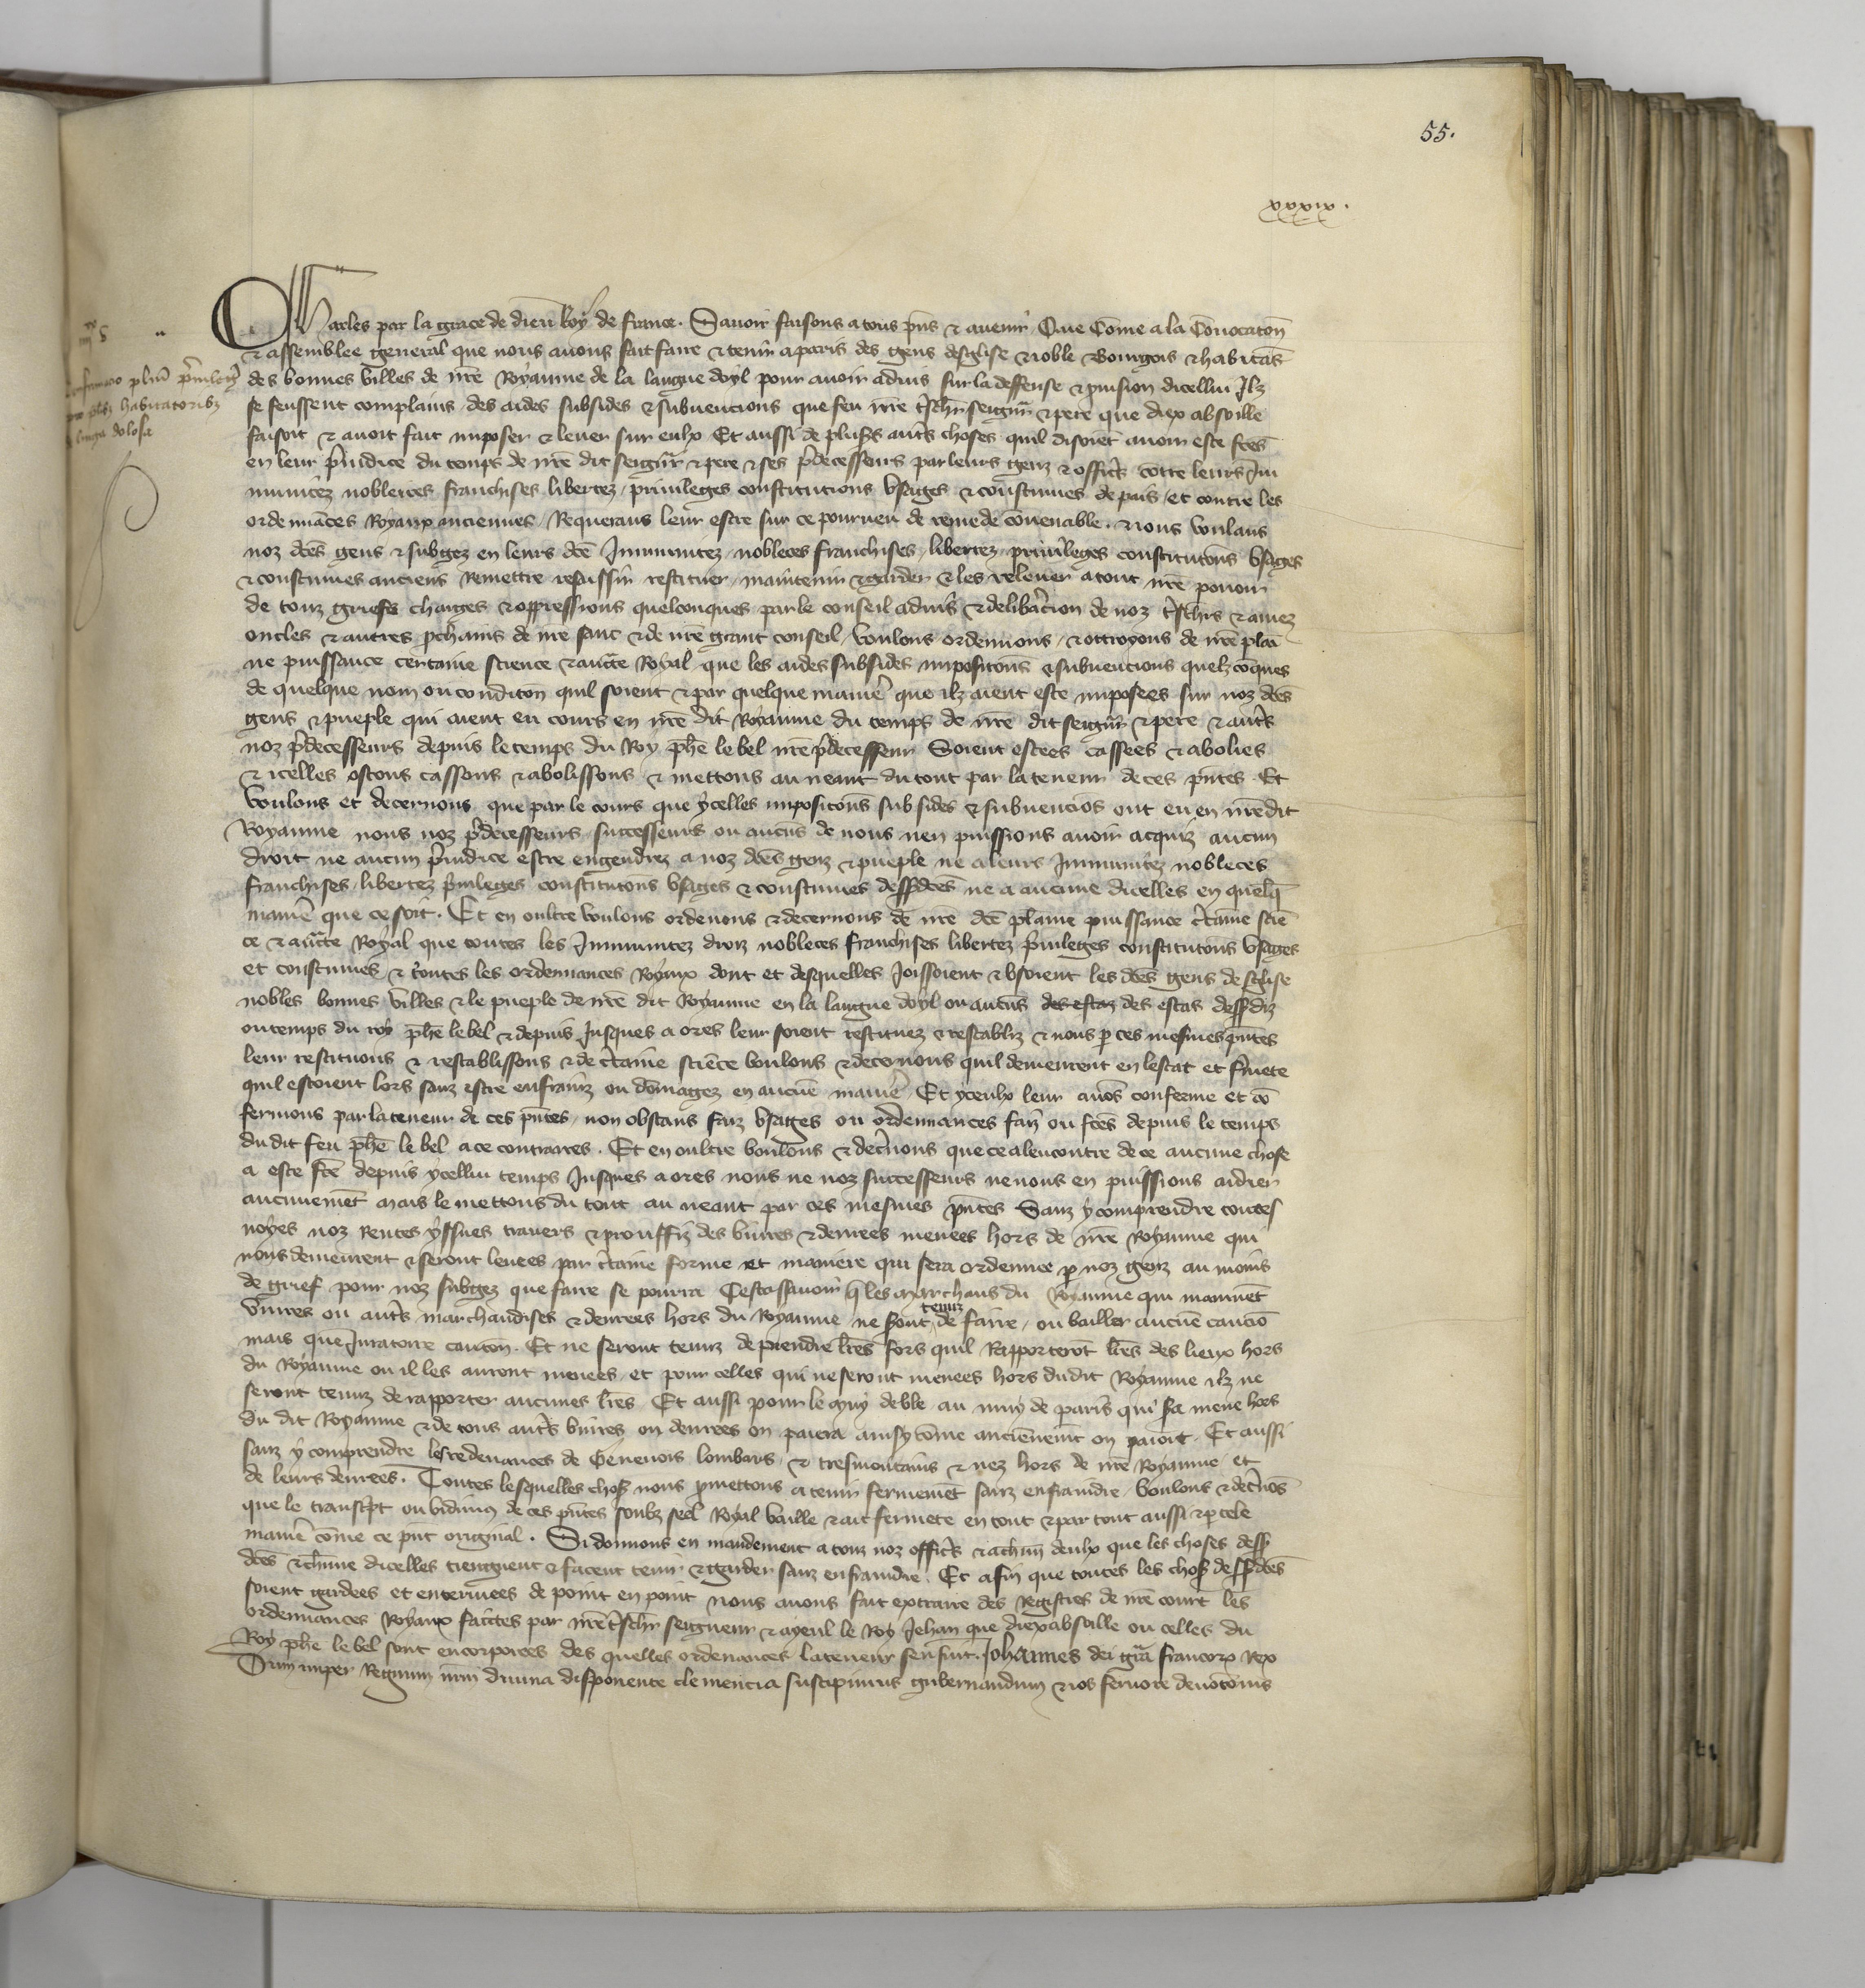 55.
xxxiv.
Charles par la grace de dieu Roy de france. Sauoir faisons a tous pñs & auenir Que Cõme a la Conuocatoñ
& assemblee general que nous auons fait faire & tenir a paris des gens deglise & noble Bourgois & habitãs
des bonnes villes de nr̃e Royaume de la langue doyl pour auoir aduis sur la deffense & puision dicellui Ilz
se feussent complains des aides subsides & subuencions que feu nr̃e tsch̃r seignr̃ & pere que diex absoille
faisoit & auoit fait imposer & leuer sur eulx Et aussi de plusrs autr̃s choses quil disoiẽt auoir este fc̃es
en leur p̃iudice du temps de nr̃e dit seignr̃ & pere & ses p̃decesseurs par leurs genz & offic̃rs cõtre leurs Im
munitez nobleces franchises libertez priuileges constitutions vsages & coustumes de pais et contre les
ordenãces Royaux anciennes Requerans leur estre sur ce pourueu de remede cõuenable. & nous voulans
noz dc̃es gens & subgez en leurs dc̃es Immunitez nobleces franchises libertez priuileges constitutoñs vsages
& coustumes anciens Remettre resaissir restituer maintenir & garder & les releuer a tout nr̃e pouoir
de touz griefs charges & oppressions quelconques par le conseil aduis & delibac̃ion de noz tsch̃rs & amez
oncles & autres pch̃ains de nr̃e sanc & de nr̃e grant conseil voulons ordennons & ottroyons de nr̃e plai
ne puissance certaine science & auct̃e Royal que les aides subsides impositoñs & subuencions quelz cõques
de quelque nom ou conditoñ quil soient & par quelque manier̃ que ilz aient este imposees sur noz dc̃es
gens & pueple qui aient eu cours en nr̃e dit Royaume du temps de nr̃e dit seignr̃ & pere & autr̃s
noz p̃decesseurs depuis le temps du Roy ph̃e le bel nr̃e p̃decesseur Soient ostees cassees & abolies
& icelles ostons cassons & abolissons & mettons au neant du tout par la teneur de ces p̃ntes Et
voulons et decernons que par le cours que ycelles impositoñs subsides & subuenciõs ont eu en nr̃e dit
Royaume nous noz p̃decesseurs successeurs ou aucũs de nous nen puissions auoir acquiz aucun
droit ne aucun p̃iudice estre engendrez a noz dc̃es genz & pueple ne a leurs Immunitez nobleces
franchises libertez p̃uileges constitutoñs vsages & coustumes dessdc̃es ne a aucune dicelles en quelq̃
manier̃ que ce soit. Et en oultre voulons ordenons & decernons de nr̃e dc̃e plaine puissance c̃taine scie
ce & auct̃e Royal que toutes les Immunitez droiz nobleces franchises libertez p̃uileges constitutoñs vsages
et coustumes & toutes les ordennances Royaux dont et desquelles Joissoient & vsoient les dc̃es gens desglise
nobles bonnes villes & le pueple de nr̃e dit Royaume en la langue doyl ou aucũs des estaz des estas dessdiz
ou temps du roy ph̃e le bel & depuis Jusques a ores leur soient restituez & restabliz & nous p ces mesmes p̃ntes
leur restituons & restablissons & de c̃taine sciẽce voulons & decernons quil demeurent en lestat et fr̃mete
quil estoient lors sanz estre enfrainz ou dõmagez en aucũe manier̃ Et yceulx leur auõs conferme et cõ
fermons par la teneur de ces p̃ntes non obstans faiz vsages ou ordennances faiz ou fc̃es depuis le temps
du dit feu ph̃e le bel a ce contraires. Et en oultre voulons & dec̃nons que ce alencontre de ce aucune chose
a este fc̃e depuis ycellui temps Jusques a ores nous ne noz successeurs ne nous en puissions aidier
aucunemẽt mais le mettons du tout au neant par ces mesmes p̃ntes Sanz y comprendre toutes
uoyes noz Rentes yssues trauers & prouffiz des viures & denrees menees hors de nr̃e Royaume qui
nous demeurent & seront leuees par c̃taine forme et maniere qui sera ordennee p noz genz au moins
de grief pour noz subgez que faire se pourra Cestassauoir q̃ les marchans du Royaume qui mainnẽt
viures ou autr̃s marchandises & denrees hors du Royaume ne seront tenuz de faire ou bailler aucũe cauciõ
mais que Juratoire cautoñ. Et ne seront tenuz de prendre lr̃es fors quil Rapporterõt lr̃es des lieux hors
du Royaume ou il les auront menees et pour celles qui ne seront menees hors du dit Royaume ilz ne
seront tenuz de rapporter aucunes lr̃es Et aussi pour le muy de ble au muy de paris qui sa mene hors
du dit Royaume & de tous autr̃s viures ou denrees on paiera ainsy cõme anciẽnemt̃ on paioit. Et aussi
sanz y comprendre les redeuances de Geneuois lombars & tresmontains & nez hors de nr̃e Royaume et
de leurs denrees. Toutes lesquelles choses nous pmettons a tenir fermemẽt sanz enfraindre voulons & dec̃nõs
que le transcpt ou vidimus de ces p̃ntes soubz seel Royal vaille & ait fermete en tout & par tout aussi & p tele
manier̃ cõme ce pnt original. Si donnons en mandement a touz noz offic̃rs & a ch̃un deulx que les choses dess
dc̃es & ch̃une dicelles tiengnent & facent tenir & garder sanz enfraindre. Et afin que toutes les choses dessdc̃es
soient gardees et enterinees de point en point nous auons fait extraire des Registres de nr̃e court les
ordennances Royaux faittes par nr̃e tsch̃r seigneur & ayeul le Roy Jehan que diex absoille ou celles du
Roy ph̃e le bel sont encorporees des quelles ordenances la teneur sensuit. Johannes dei gr̃a francorx Rex
Dum nuper Regnum nr̃m diuina disponente clemencia suscipimus gubernandum & nos feruore deuotoñis